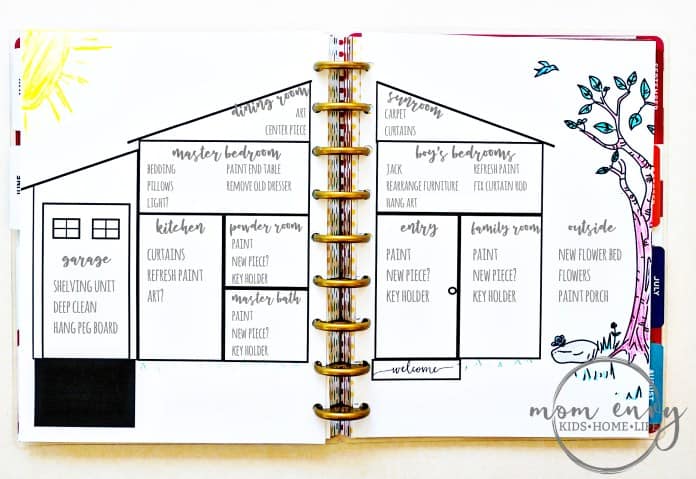 dining room
ART
CENTER PIECE
master bedroom
BEDDING
PILLOWS
LIGHT?
PAINT END TABLE
REMOVE OLD DRESSER
garage
SHELVING UNIT
DEEP CLEAN
HANG PEG BOARD
kitchen
CURTAINS
REFRESH PAINT
ART?
powder room
PAINT
NEW PIECE?
KEY HOLDER
master bath
PAINT
NEW PIECE?
KEY HOLDER
sunroom
CARPET
CURTAINS
boy's bedrooms
JACK
REARRANGE FURNITURE
HANG ART
REFRESH PAINT
FIX CURTAIN ROD
entry
PAINT
NEW PIECE?
KEY HOLDER
family room
PAINT
NEW PIECE?
KEY HOLDER
outside
NEW FLOWER BED
FLOWERS
PAINT PORCH
welcome
JUNE
JULY
AUGUST
mom envy
KIDS•HOME•LIFE